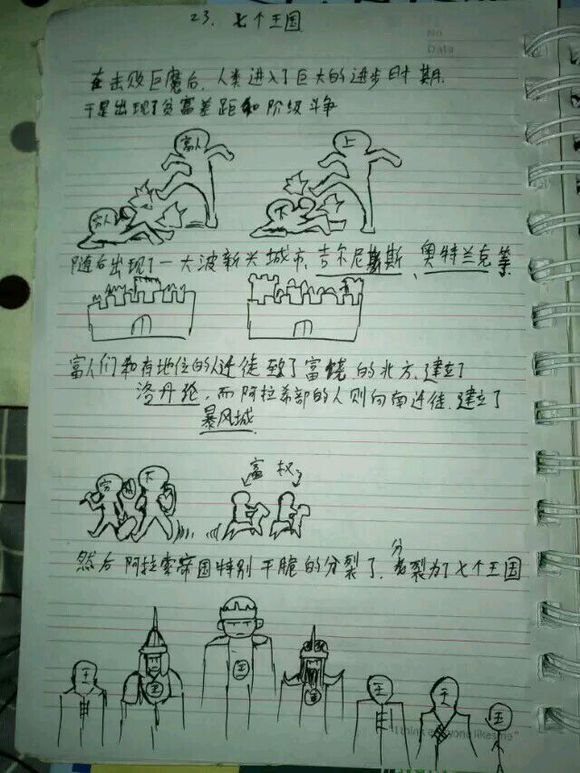 23. 七个王国
No
Data
在击败巨魔后,人类进入了巨大的进步时期.
于是出现了贫富差距和阶级斗争
富人 上
穷人 下
随后出现了一大波新兴城市,吉尔尼斯、奥特兰克等
富人们和有地位的人迁徙致了富饶的北方,建立了
洛丹伦,而阿拉希部的人则向南迁徙,建立了
暴风城
富 权
穷 下
然后阿拉索帝国特别干脆的分裂了,分裂为了七个王国
王 王 王 王 王 王 王